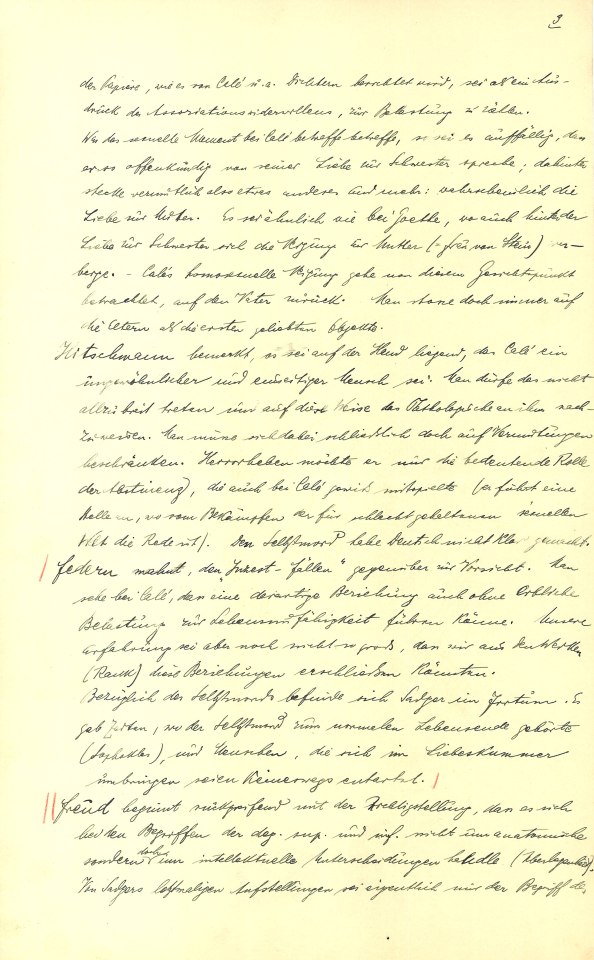 3
der Papiere, wie es von Calé u. a. Dichtern berichtet wird, sei als ein Aus-
druck des Associationswiderwillens, zur Belastung zu zählen.
Was das sexuelle Moment bei Calé betreffe betreffe, so sei es auffällig, dass
er so offenkundig von seiner Liebe zur Schwester spreche; dahinter
stecke vermutlich also etwas anderes und mehr: wahrscheinlich die
Liebe zur Mutter. Es sei ähnlich wie bei Goethe, wo auch hinter der
Liebe zur Schwester sich die Neigung zur Mutter (= Frau von Stein) ver-
berge. – Calés homosexuelle Neigung gehe von diesem Gesichtspunkt
betrachtet, auf den Vater zurück. Man stosse doch immer auf
die Eltern als die ersten geliebten Objekte.
Hitschmann bemerkt, es sei auf der Hand liegend, das Calé ein
ungewöhnlicher und einseitiger Mensch sei. Man dürfe das nicht
allzu breit treten und auf diese Weise das Pathologische an ihm nach-
zuweisen. Man müsse sich dabei schliesslich doch auf Vermutungen
beschränken. Hervorheben möchte er nur die bedeutende Rolle
der Abstinenz, die auch bei Calé gewiß mitspielte (er führt eine
Stelle an, wo vom Bekämpfen der für schlecht gehaltenen sexuellen
Welt die Rede ist). Den Selbstmord habe Deutsch nicht klar gemacht.
Federn mahnt, den "Inzest-fällen" gegenüber zur Vorsicht. Man
sehe bei Calé, dass eine derartige Beziehung auch ohne erbliche
Belastung zur Lebensunfähigkeit führen könne. Unsere
Erfahrung sei aber noch nicht so gross, dass wir aus den Werken
(Rank) diese Beziehungen erschließen könnten.
Bezüglich des Selbstmords befinde sich Sadger im Irrtum. Es
gab Zeiten, wo der Selbstmord zum normalen Lebensende gehörte
(Sophokles), und Menschen, die sich im Liebeskummer
umbringen seien keineswegs entartet.
Freud beginnt rückgreifend mit der Richtigstellung, dass es sich
bei den Begriffen der deg. sup. und inf. nicht um anatomische
sondern doch um intellektuelle Unterscheidungen handle
Von Sadgers letztmaligen Aufstellungen sei eigentlich nur der Begriff des